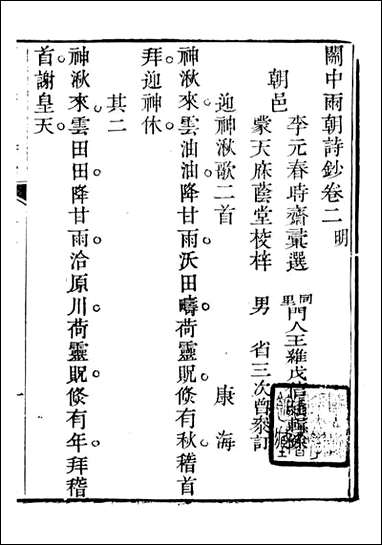 關中兩朝詩鈔卷二 明
朝邑 李元春時齋彙選 同里門人王維戊信
蒙天庥蔭堂校梓 男 省三次曾叅訂
迎神湫歌二首 康海
神湫來雲油油降甘雨沃田疇荷靈貺倐有秋稽首
拜迎神休
其二
神湫來雲田田降甘雨洽原川荷靈貺倐有年拜稽
首謝皇天